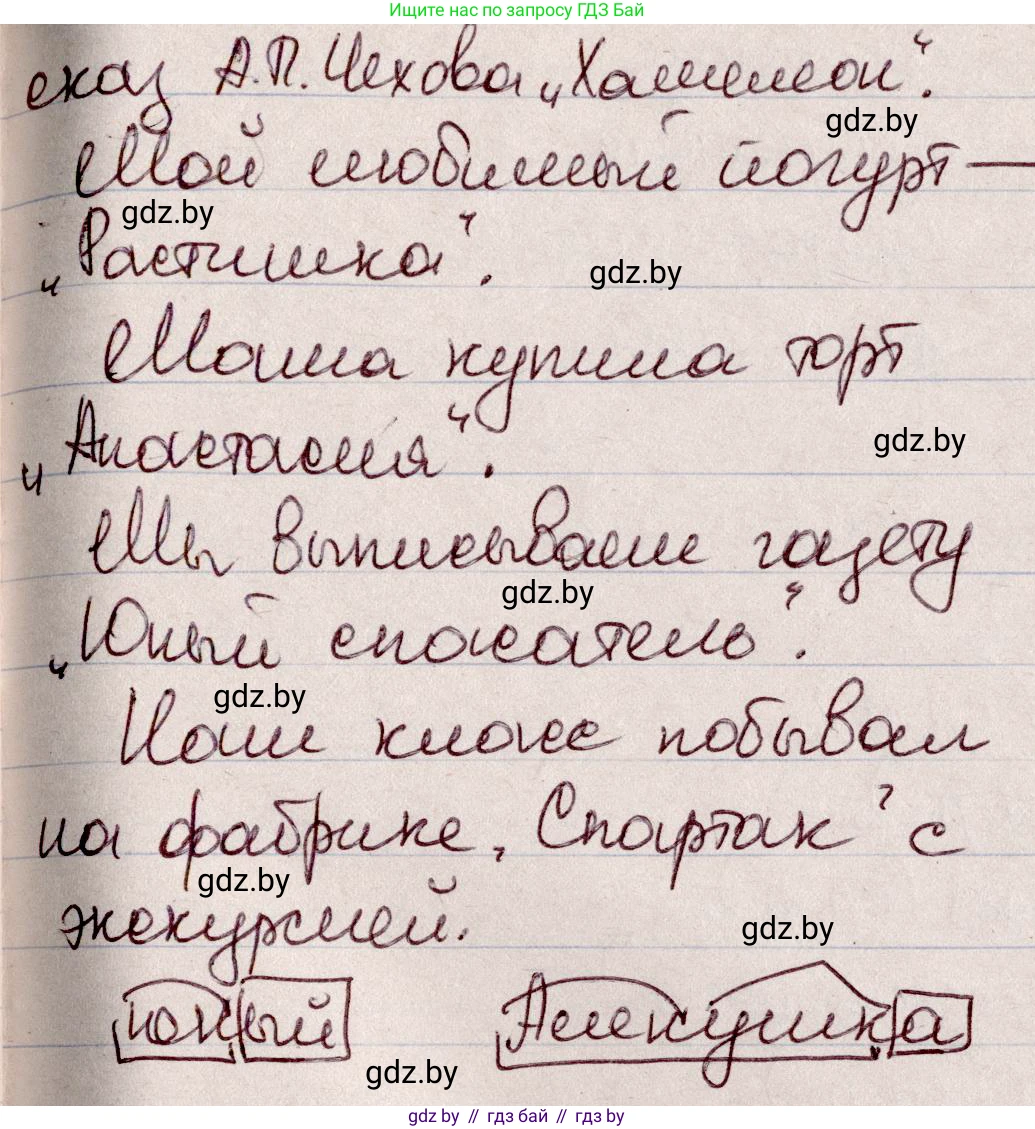 Ищите нас по запросу ГДЗ Бай
сказ А.П. Чехова „Хамелеон“.
gdz.by
Мой любимый йогурт —
gdz.by
„Растишка“.
gdz.by
Маша купила торт
gdz.by
„Анастасия“.
Мы выписываем газету
gdz.by
„Юный спасатель“.
gdz.by
Наш класс побывал
на фабрике „Спартак“ с
gdz.by
экскурсией.
gdz.by
юный Аленушка
gdz.by
gdz.by // гдз бай // gdz by